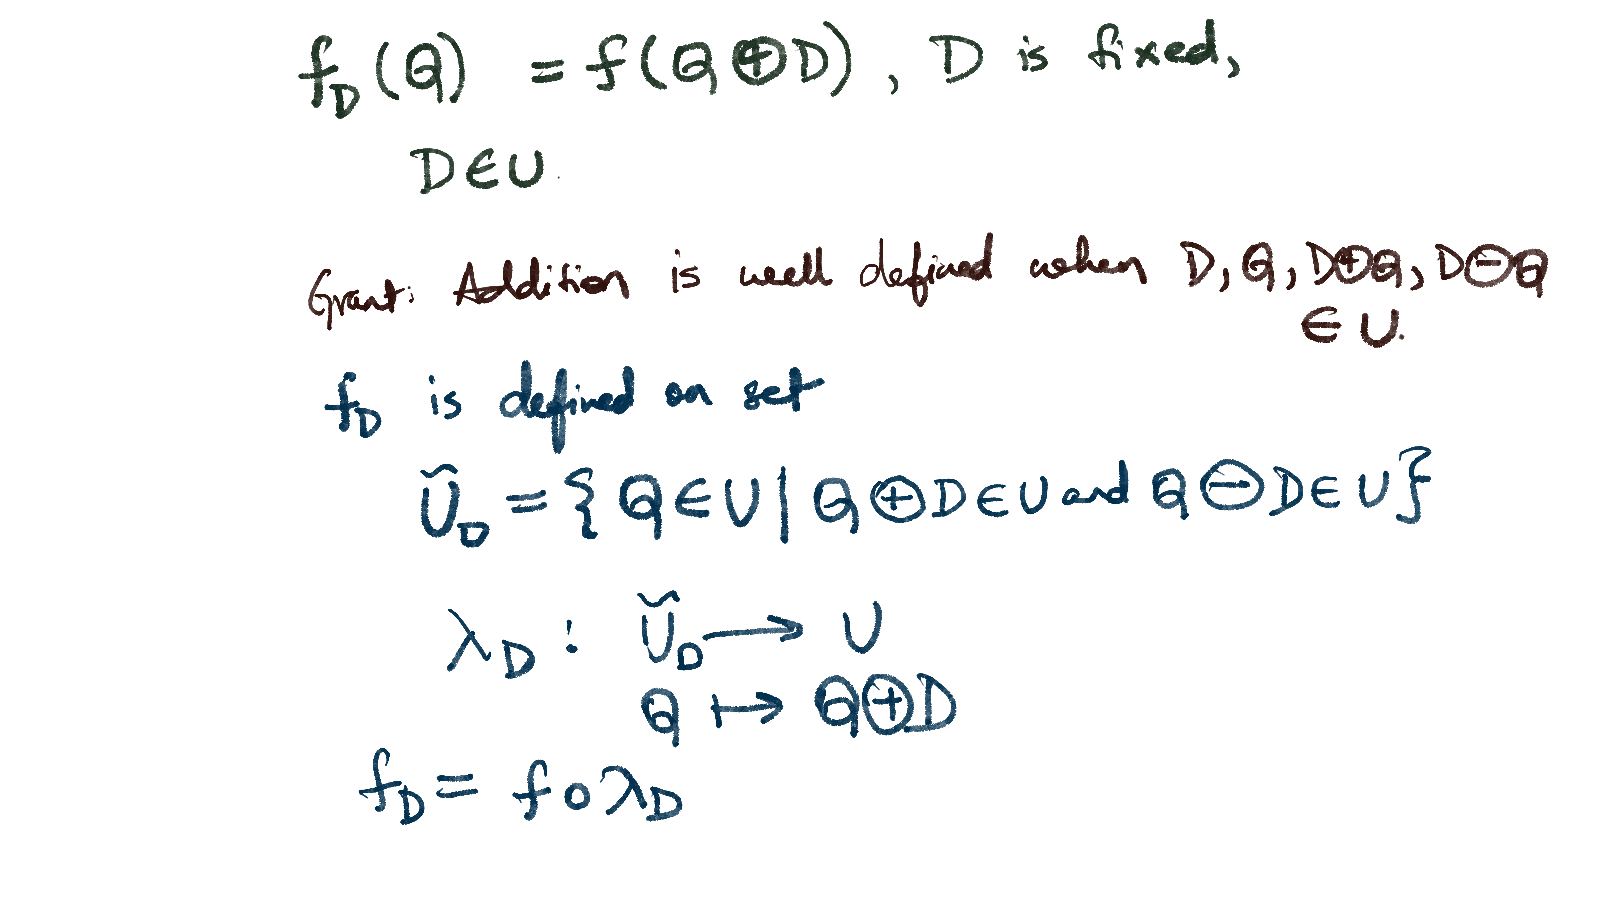 f_D(Q) = f(Q ⊕ D), D is fixed,
D ∈ U.
Grant: Addition is well defined when D, Q, D⊕Q, D⊖Q
∈ U.
f_D is defined on set
Ũ_D = { Q ∈ U | Q ⊕ D ∈ U and Q ⊖ D ∈ U }
λ_D : Ũ_D → U
Q ↦ Q⊕D
f_D = f ∘ λ_D